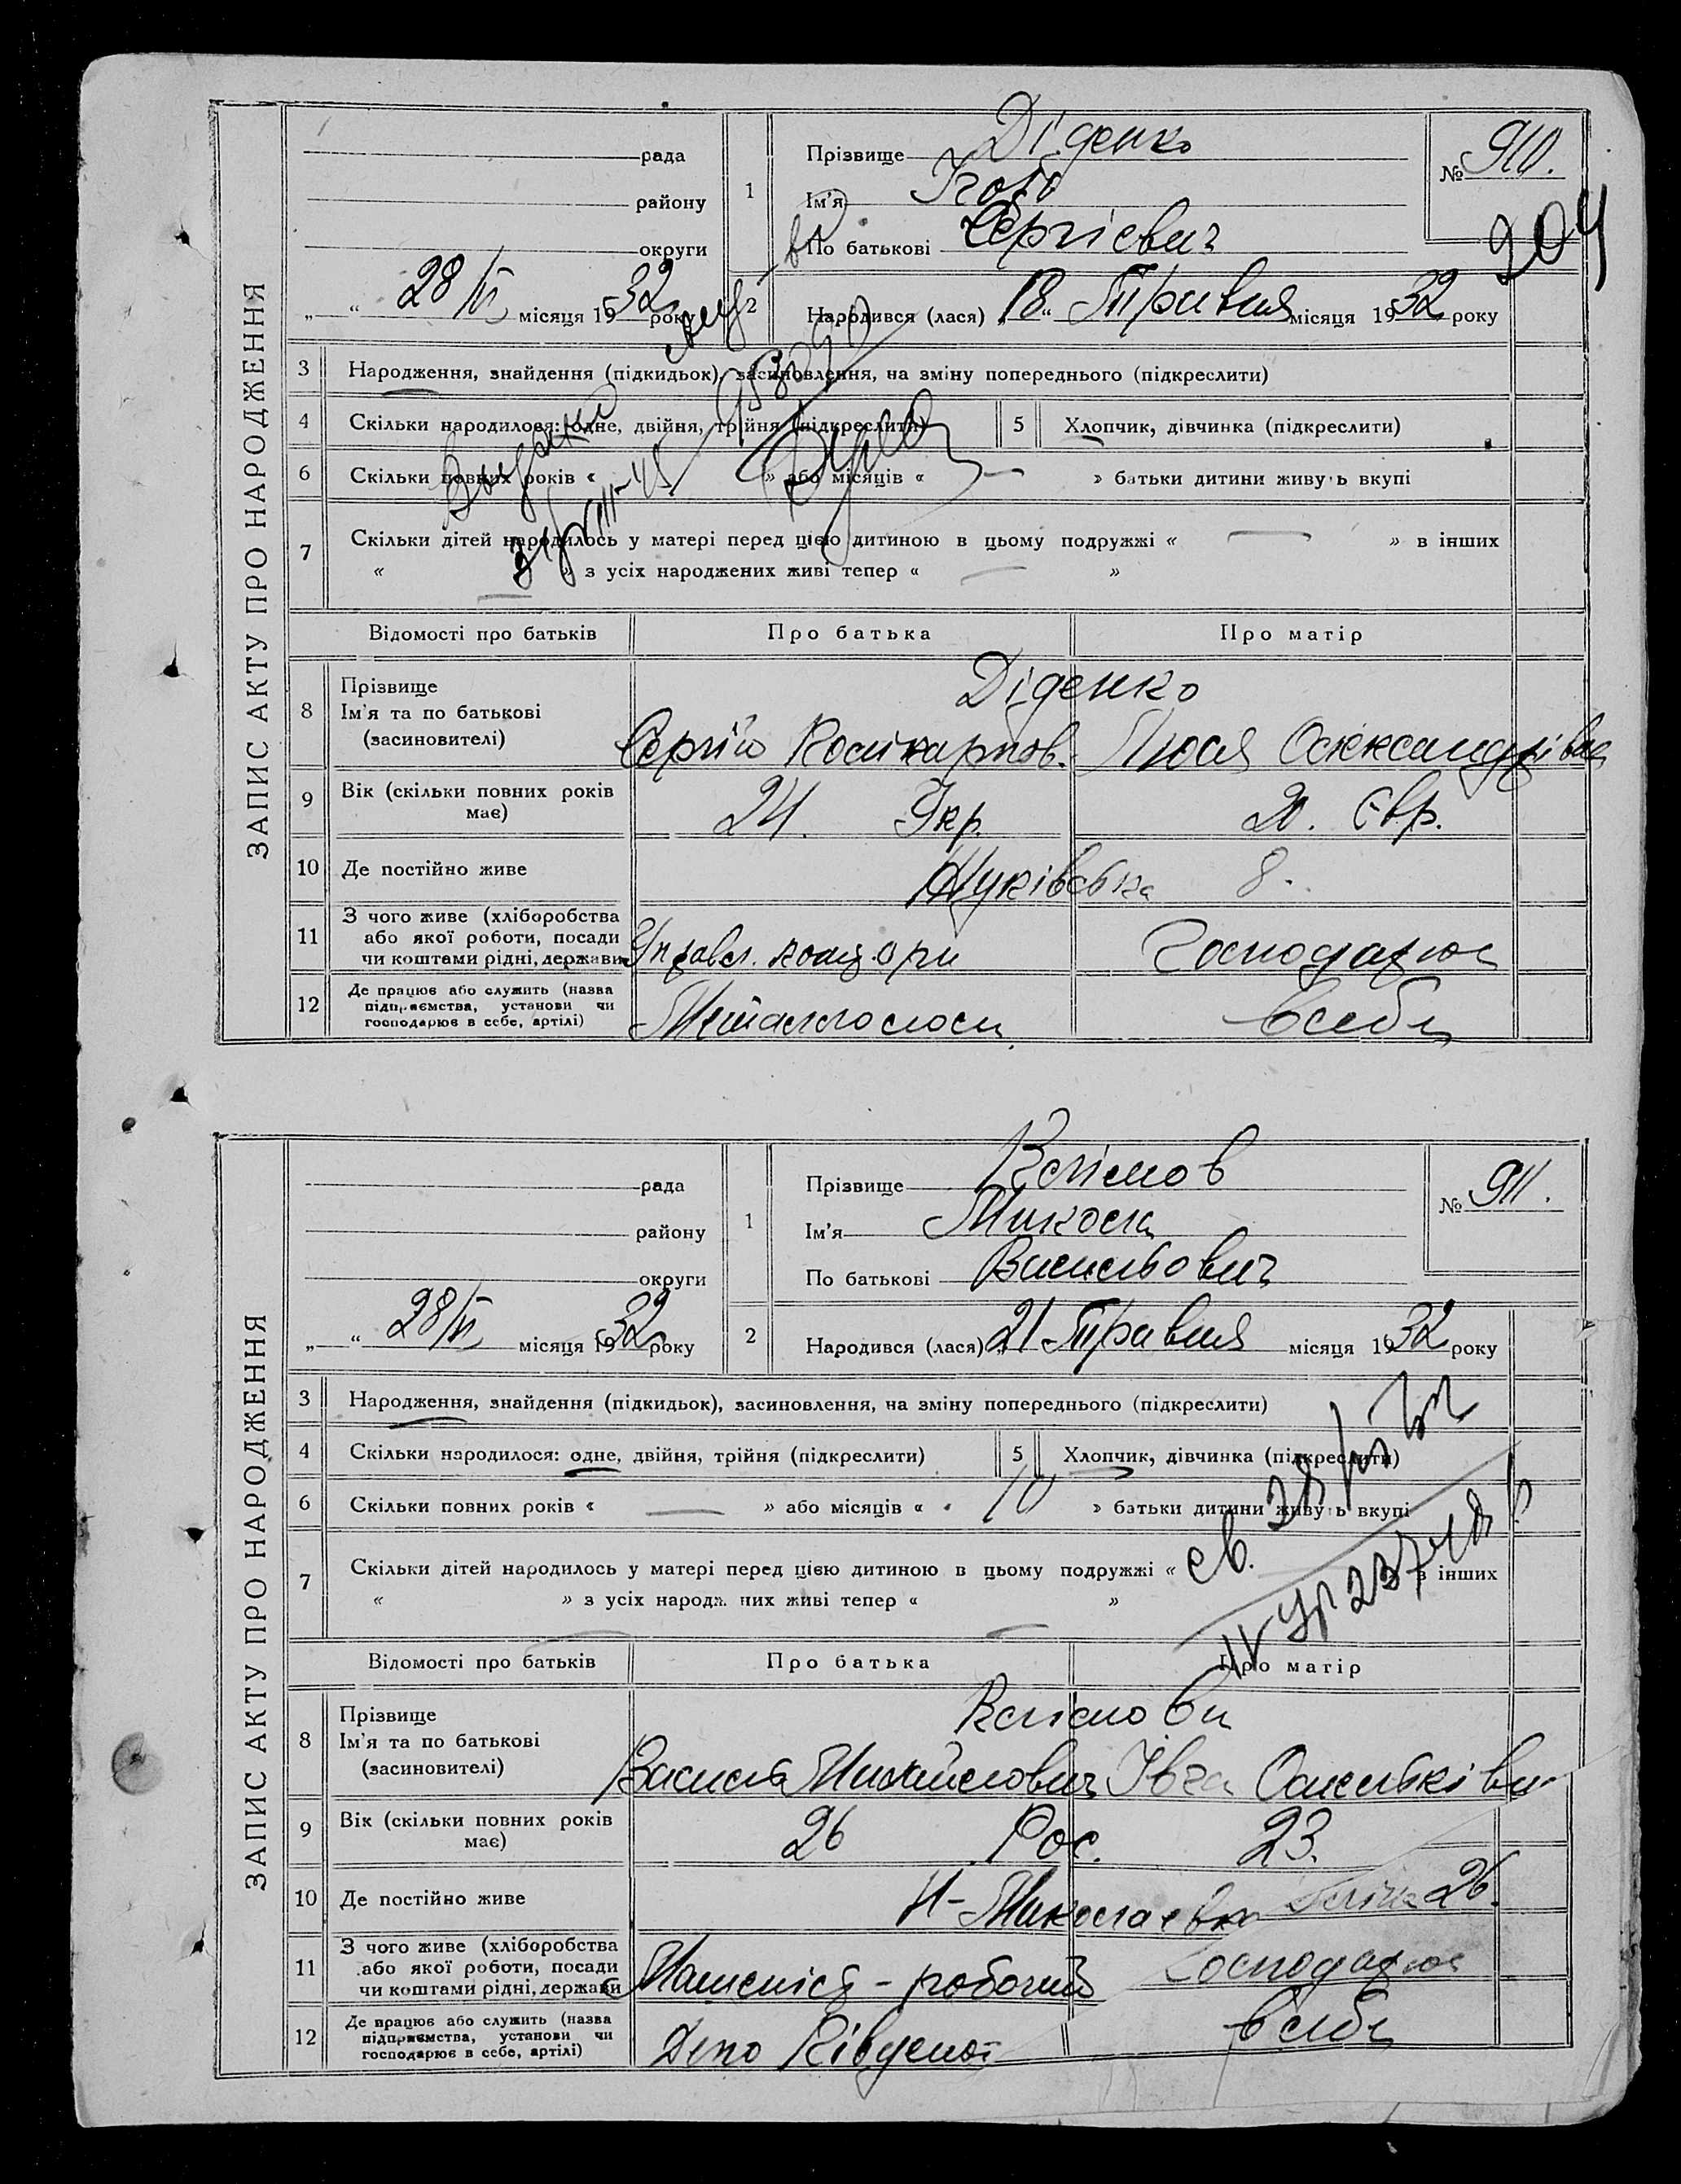 ЗАПИС АКТУ ПРО НАРОДЖЕННЯ
рада
району
округи
„ “ 28/VI місяця 1932 року
1
Прізвище Діденко
Ім'я
По батькові Сергієвич
№ 910.
204
2
Народився (лася) „18“ Травня місяця 1932 року
3 Народження, знайдення (підкидьок), засиновлення, на зміну попереднього (підкреслити)
4 Скільки народилося: одне, двійня, трійня (підкреслити)
5 Хлопчик, дівчинка (підкреслити)
6 Скільки повних років « » або місяців « — » батьки дитини живуть вкупі
7 Скільки дітей народилось у матері перед цією дитиною в цьому подружжі « — » в інших
« — » з усіх народжених живі тепер « — »
Відомості про батьків
Про батька
Про матір
8 Прізвище
Ім'я та по батькові
(засиновителі)
Діденко
Сергій Полікарпов. Люся Олександрівна
9 Вік (скільки повних років
має)
24. Укр. 20. Євр.
10 Де постійно живе
8.
11 З чого живе (хліборобства
або якої роботи, посади
чи коштами рідні, держави
Господарює
12 Де працює або служить (назва
підприємства, установи чи
господарює в себе, артілі)
в себе
ЗАПИС АКТУ ПРО НАРОДЖЕННЯ
рада
району
округи
„ “ 28/VI місяця 1932 року
1
Прізвище Клімов
Ім'я Микола
По батькові Васильович
№ 911.
2
Народився (лася) „21 Травня місяця 1932 року
3 Народження, знайдення (підкидьок), засиновлення, на зміну попереднього (підкреслити)
4 Скільки народилося: одне, двійня, трійня (підкреслити)
5 Хлопчик, дівчинка (підкреслити)
6 Скільки повних років « — » або місяців « 10 » батьки дитини живуть вкупі
7 Скільки дітей народилось у матері перед цією дитиною в цьому подружжі « в інших
« » з усіх народжених живі тепер « »
Відомості про батьків
Про батька
Про матір
8 Прізвище
Ім'я та по батькові
(засиновителі)
Клімови
Василь Михайлович Івга Омельківн
9 Вік (скільки повних років
має)
26 Рос. 23.
10 Де постійно живе
Н-Миколаевка 26.
11 З чого живе (хліборобства
або якої роботи, посади
чи коштами рідні, держави
робочий Господарює
12 Де працює або служить (назва
підприємства, установи чи
господарює в себе, артілі)
Депо Південої
в себе